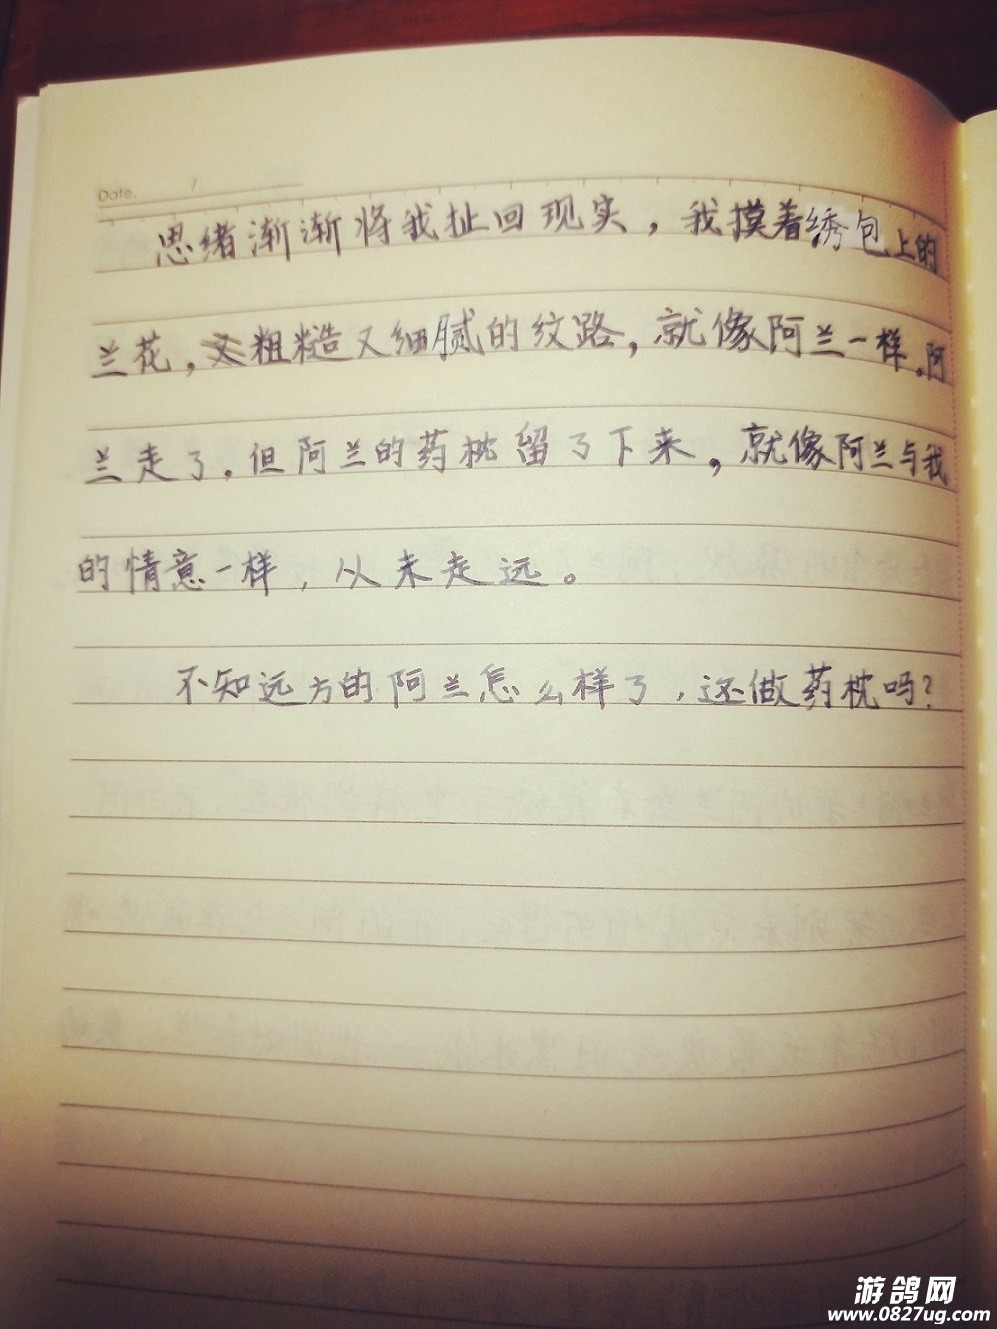 Date.
思绪渐渐将我扯回现实，我摸着绣包上的
兰花，粗糙又细腻的纹路，就像阿兰一样。阿
兰走了，但阿兰的药枕留了下来，就像阿兰与我
的情意一样，从未走远。
不知远方的阿兰怎么样了，还做药枕吗？
游鸽网
www.0827ug.com